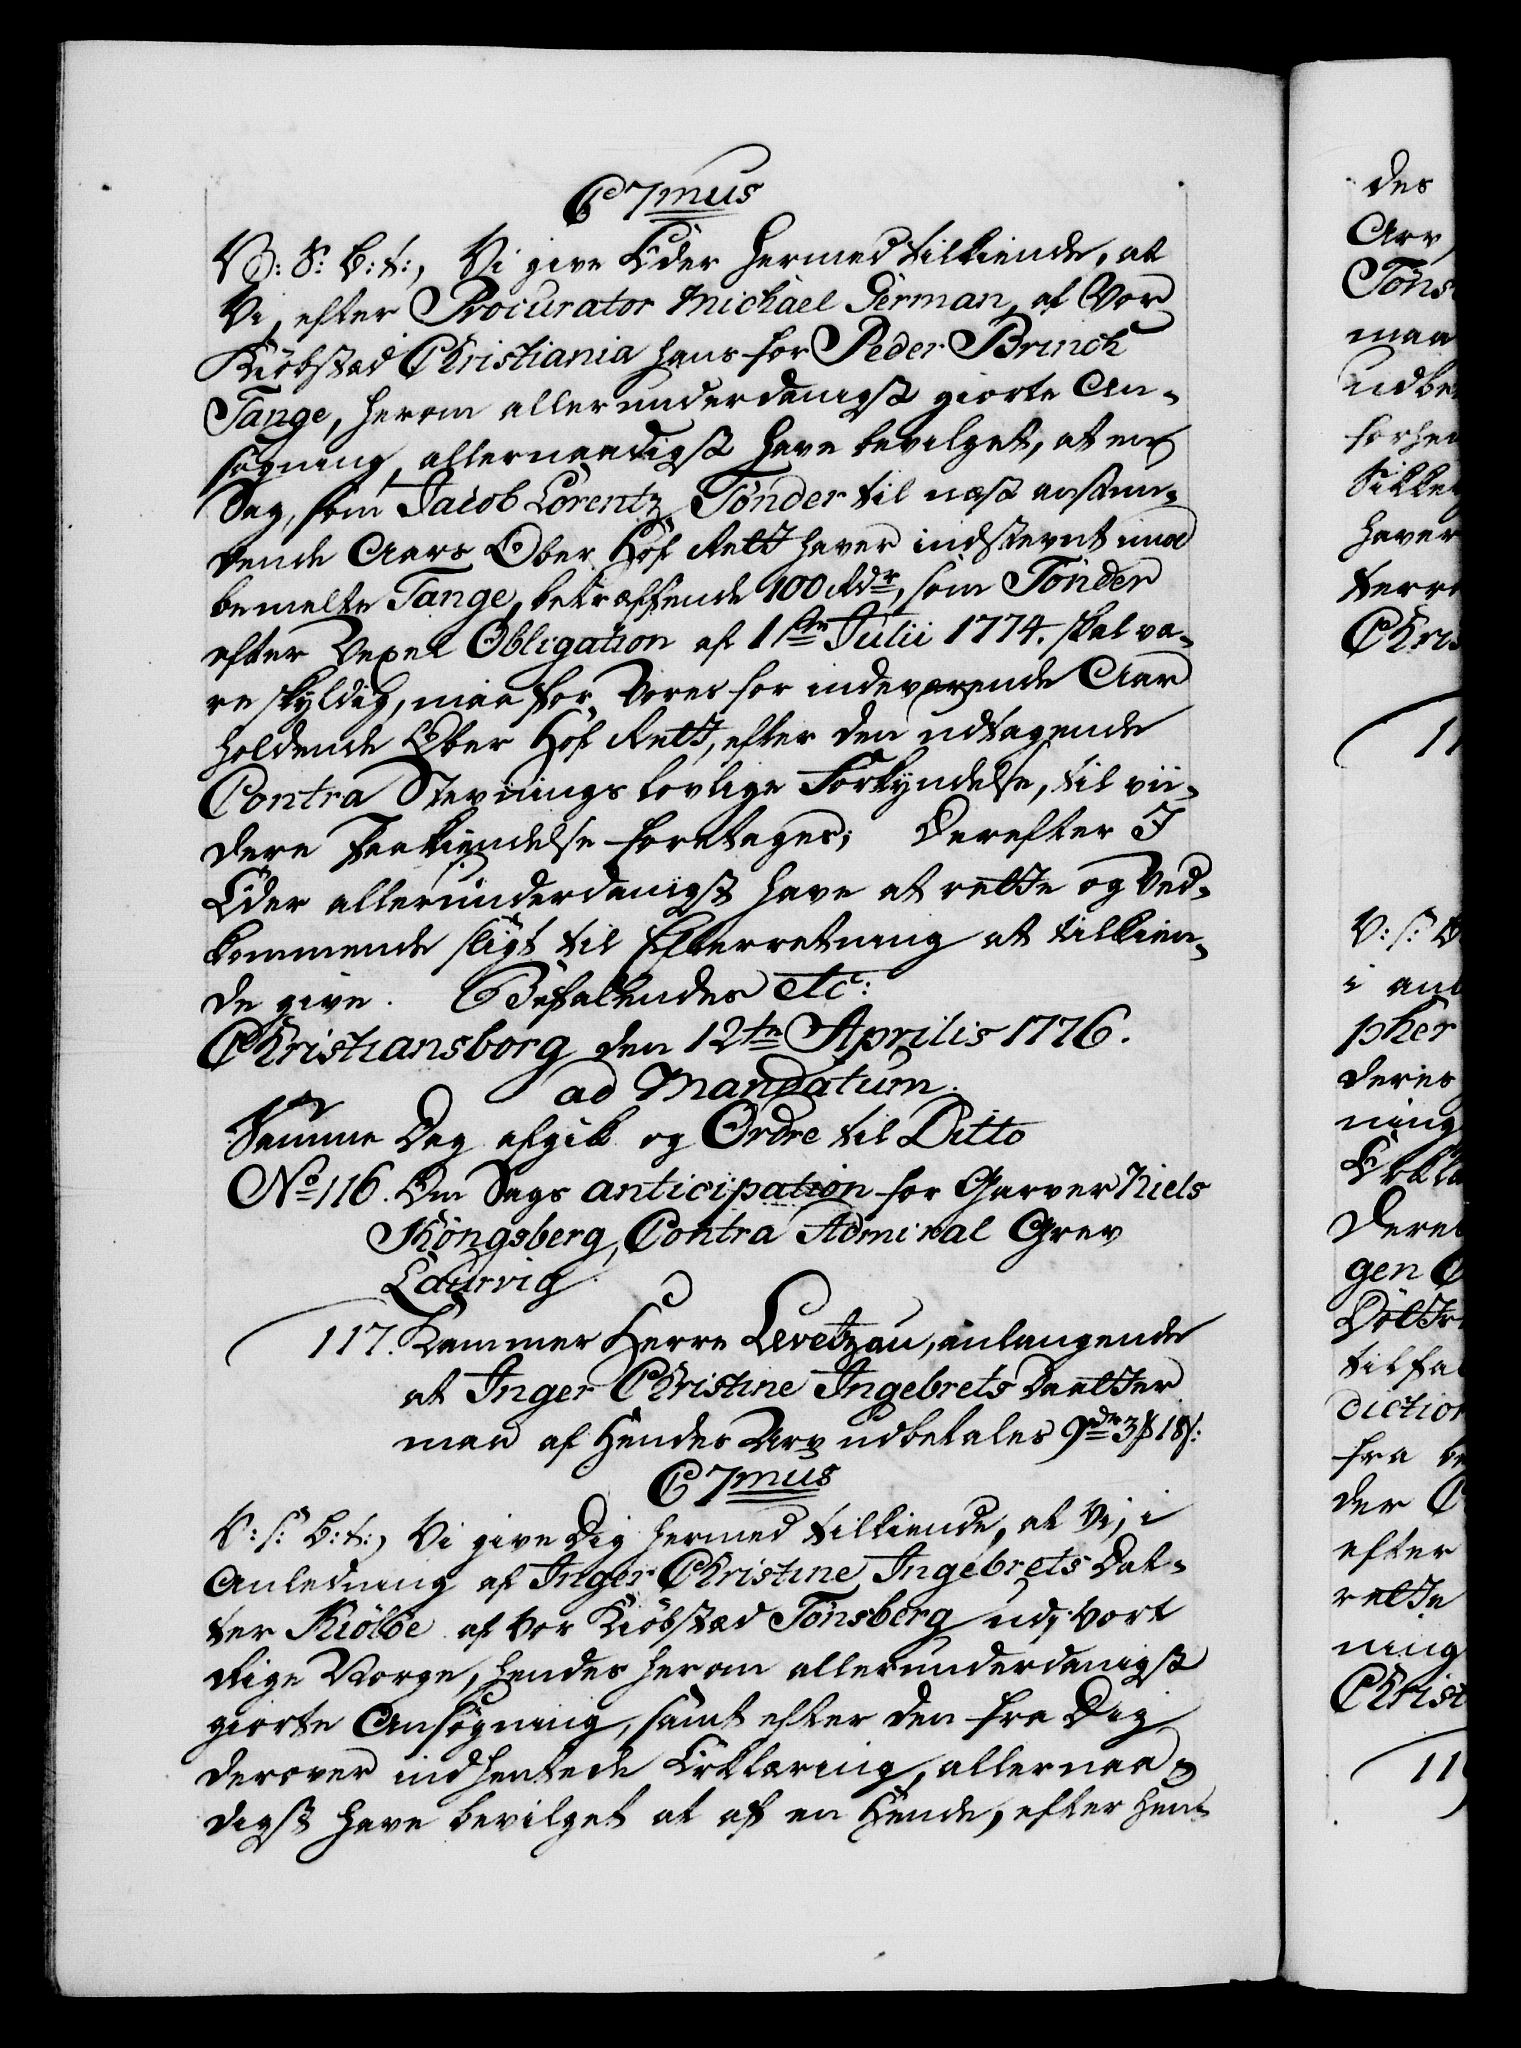 C7mus
V: S: B: t:, Vi give Eder hermed tilkiende, at
Vi, efter Procurator Michael German, af Vor
Kiöbstæd Christiania hans for Peder Brinch
Tange, herom allerunderdanigst giorte An-
søgning, allernaadigst have bevilget, at en
Sag, som Jacob Lorentz Tönder til næst anstun-
dende Aars Ober Hof Rett haver indstevnt imod
bemelte Tange, betræffende 100 Rdr, som Tönder
efter Vexel Obligation af 1ste Julii 1774. skal væ-
re skyldig, maa for Vores for indeværende Aar
holdende Ober Hof Rett, efter den udtagende
Contra Stevnings lovlige Forkyndelse, til vii-
dere Paakiendelse foretages; Derefter I
Eder allerunderdanigst have at rette og Ved-
kommende sligt til Efterretning at tilkien-
de give. Befalendes etc:
Christiansborg den 12te Aprilis 1776.
ad Mandatum.
Samme Dag afgik og Ordre til Ditto
No 116. Om Sags anticipation for Garver Niels
Kongsberg, Contra Admiral Grev
Laurvig
117. Kammer Herre Levetzau, anlangende
at Inger Christine Ingebrets Daatter
maa af Hendes Arv udbetales 9 rdr 3 ß 18 s:
C7mus
V: S: B: t:, Vi give Dig hermed tilkiende, at Vi, i
Anledning af Inger Christine Ingebrets Dat-
ter Kiölbe af Vor Kiöbstæd Tönsberg udj Vort
Rige Norge, hendes herom allerunderdanigst
giorte Ansøgning, samt efter den fra Dig
derover indhentede Erklæring, allernaa-
digst have bevilget at af en Hende, efter hen-
des
Arv
Töns
maa
udbe
forhen
Sikker
haver
terre
Chris
11
V: S: B
i anl
pher
deres
ning
Erklæ
Deref
gen C
Dötte
tilfal
diction
fra be
der C
efter
rette
ning
Christ
119